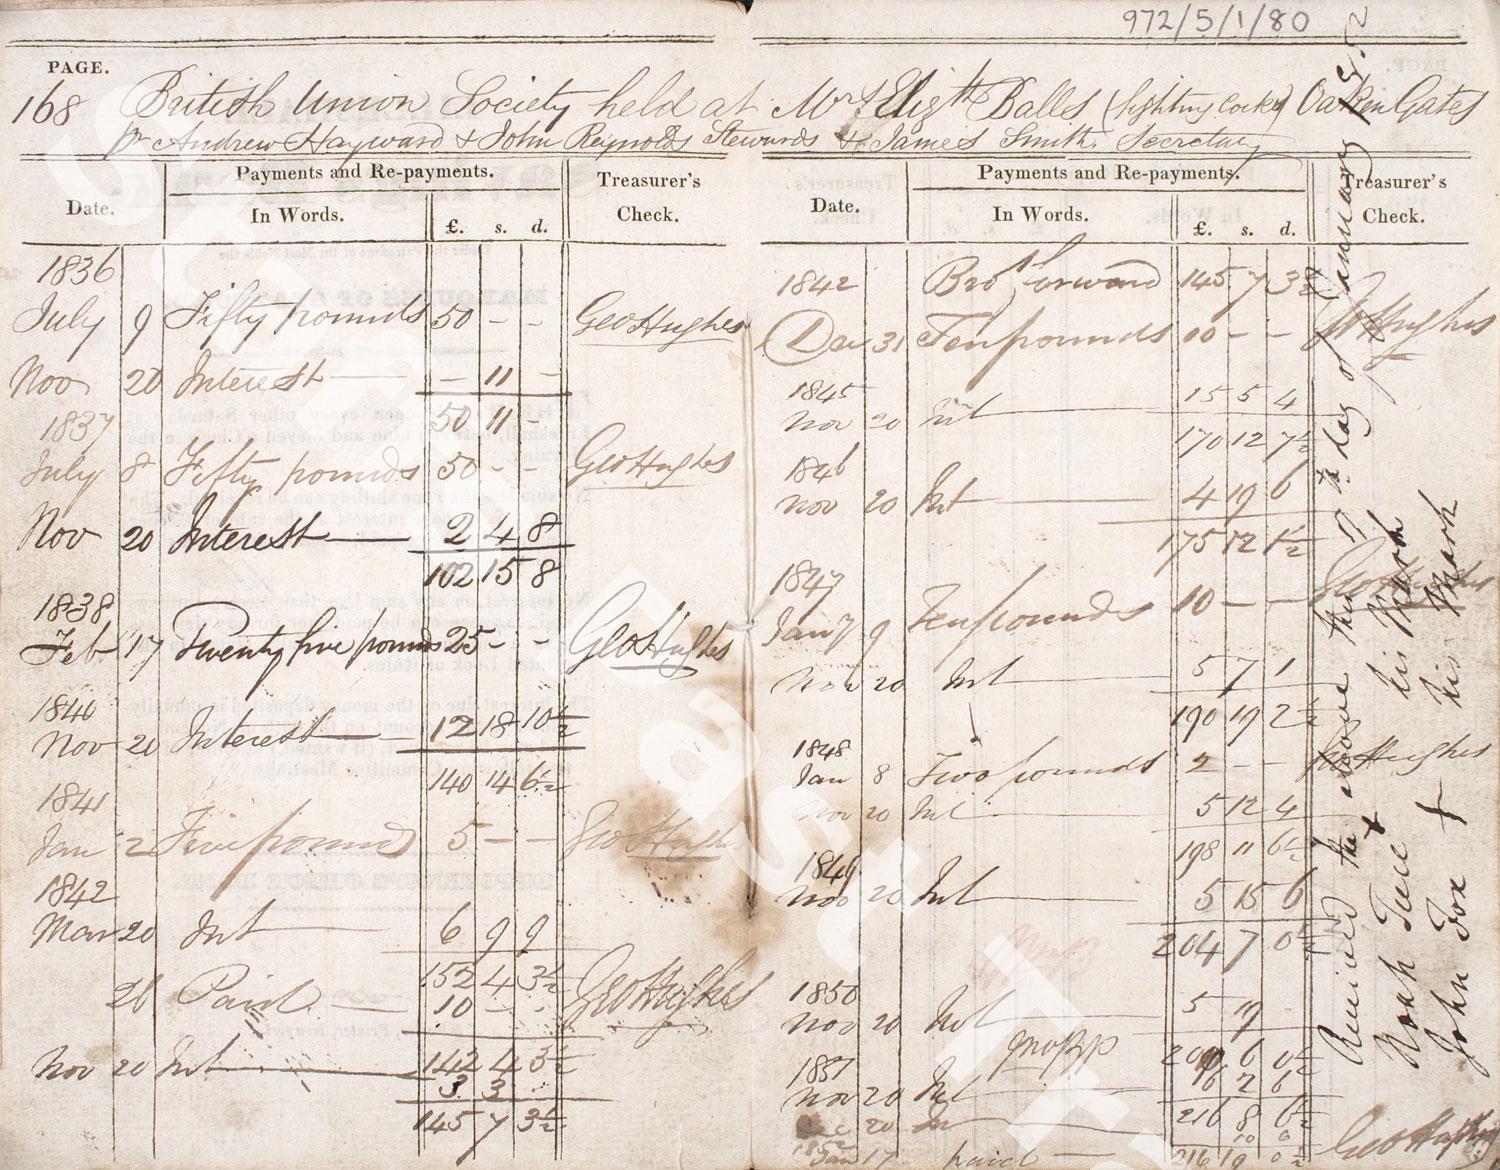 972/5/1/80
PAGE.
168 British Union Society held at Mrs Elizth Balls (fighting Cocks) Oaken Gates
pr Andrew Hayward & John Reynolds Stewards & James Smith Secretary
Date. Payments and Re-payments. Treasurer's Check.
In Words. £. s. d.
1836
July 9 Fifty pounds 50 - - Geo Hughes
Nov 20 Interest - 11 -
50 11 -
1837
July 8 Fifty pounds 50 - - Geo Hughes
Nov 20 Interest 2 4 8
102 15 8
1838
Feb 17 Twenty five pounds 25 - - Geo Hughes
1840
Nov 20 Interest 12 18 10½
140 14 6½
1841
Jan 2 Five pounds 5 - - Geo Hughes
1842
Mar 20 Int 6 9 9
152 4 3½
26 Paid 10 - - Geo Hughes
142 4 3½
Nov 20 Int 3 3 -
145 7 3½
Date. Payments and Re-payments. Treasurer's Check.
In Words. £. s. d.
1842 Bro't forward 145 7 3½
Dec 31 Ten pounds 10 - - Geo Hughes
1845
Nov 20 Int 15 5 4
170 12 7½
1846
Nov 20 Int 4 19 6
175 12 1½
1847
Jany 9 Ten pounds 10 - - Geo Hughes
Nov 20 Int 5 7 1
190 19 2½
1848
Jan 8 Two pounds 2 - - Geo Hughes
Nov 20 Int 5 12 4
198 11 6½
1849
Nov 20 Int 5 15 6
204 7 0½
1850
Nov 20 Int 5 19
6 0½
1851
Nov 20 Int 6 2 6
216 8 6½
Dec 20 In 10 6
1852
Jan 17 paid 216 19 0½ Geo Hughes
Received the above this 17th day of January 1852
Noah Tuce X his Mark
John Fox X his Mark